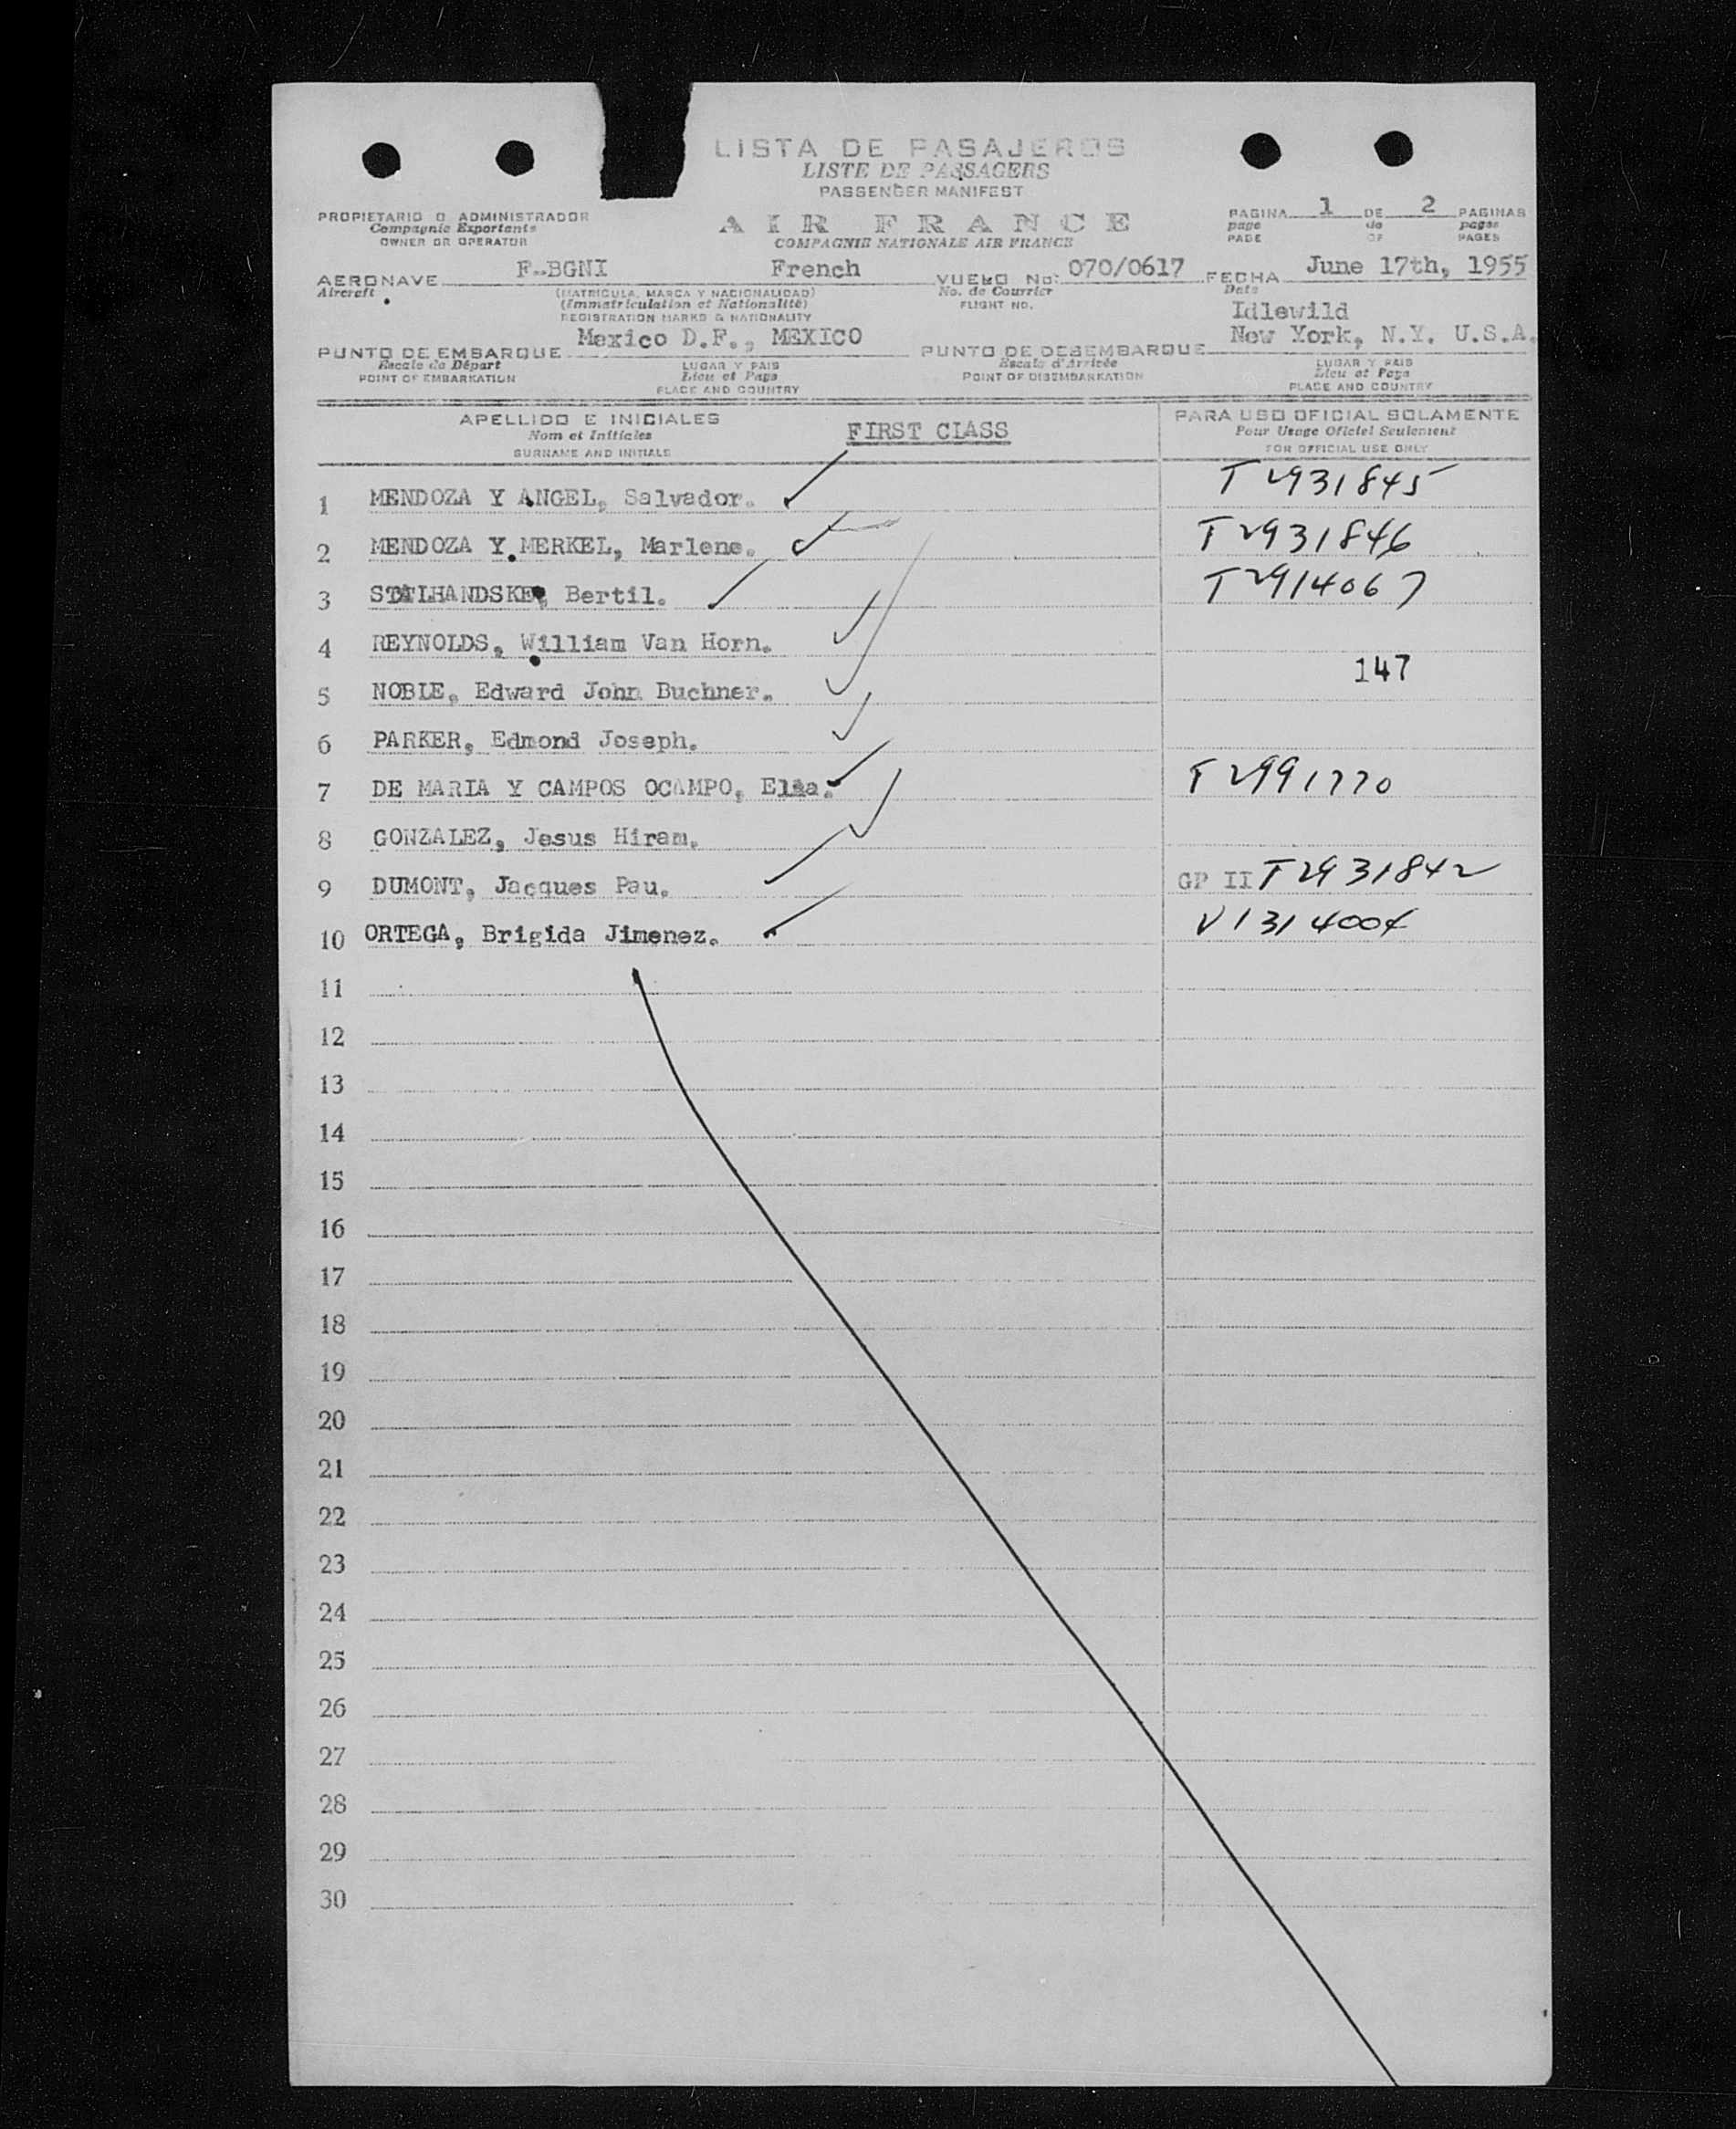 LISTA DE PASAJEROS
LISTE DE PASSAGERS
PASSENGER MANIFEST
PROPIETARIO O ADMINISTRADOR
Compagnie Exportants
OWNER OR OPERATOR
AIR FRANCE
COMPAGNIE NATIONALE AIR FRANCE
PAGINA 1 DE 2 PAGINAS
page de pages
PAGE OF PAGES
AERONAVE F-BGNI French VUELO No: 070/0617 FECHA June 17th, 1955
Aircraft (MATRICULA, MARCA Y NACIONALIDAD) No. de Courrier Date
(Immatriculation et Nationalité) FLIGHT NO.
REGISTRATION MARKS & NATIONALITY
Idlewild
PUNTO DE EMBARQUE Mexico D.F., MEXICO PUNTO DE DESEMBARQUE New York, N.Y. U.S.A.
Escale de Départ LUGAR Y PAIS Escale d'Arrivée LUGAR Y PAIS
POINT OF EMBARKATION Lieu et Pays POINT OF DISEMBARKATION Lieu et Pays
PLACE AND COUNTRY PLACE AND COUNTRY
APELLIDO E INICIALES FIRST CLASS PARA USO OFICIAL SOLAMENTE
Nom et Initiales Pour Usage Oficiel Seulement
SURNAME AND INITIALS FOR OFFICIAL USE ONLY
1 MENDOZA Y ANGEL, Salvador. T2931845
2 MENDOZA Y MERKEL, Marlene. T2931846
3 Bertil. T2914067
4 REYNOLDS, William Van Horn.
147
5 NOBLE, Edward John Buchner.
6 PARKER, Edmond Joseph.
7 DE MARIA Y CAMPOS OCAMPO, T2991770
8 GONZALEZ, Jesus Hiram.
9 DUMONT, Jacques Pau. GP II T2931842
10 ORTEGA, Brigida Jimenez. V1314004
11
12
13
14
15
16
17
18
19
20
21
22
23
24
25
26
27
28
29
30